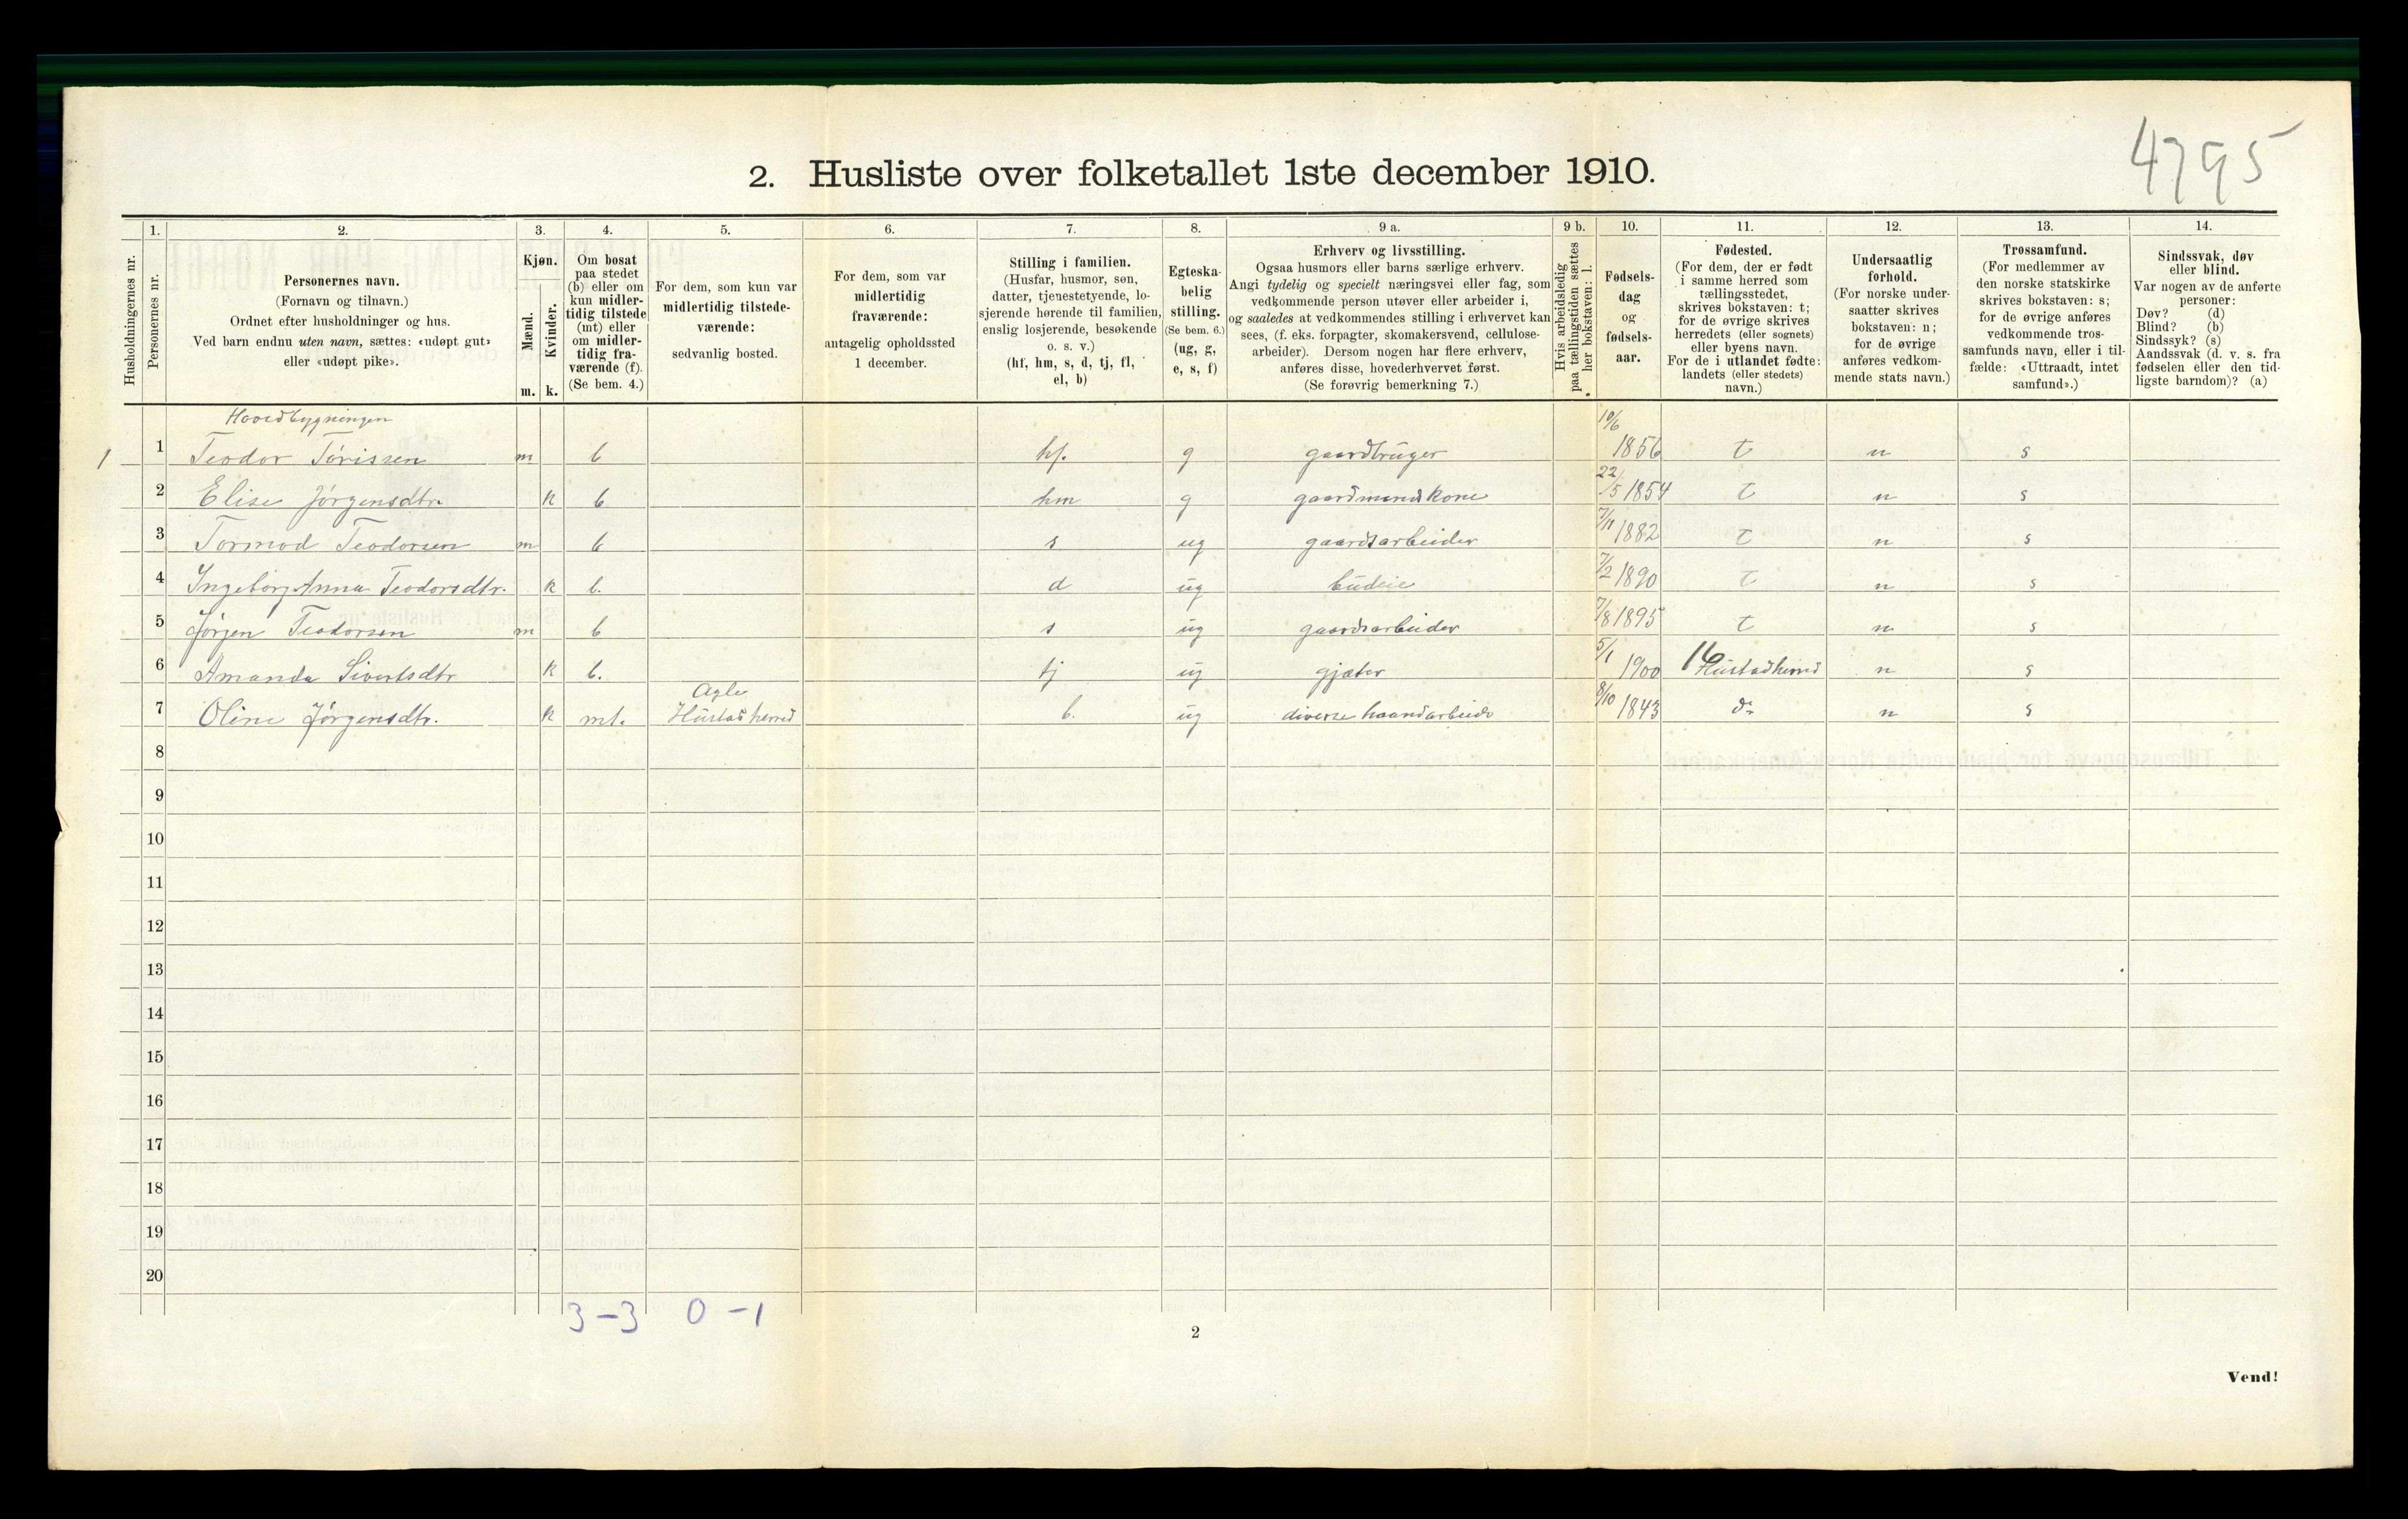 4795
2. Husliste over folketallet 1ste december 1910.
1. 2. 3. 4. 5. 6. 7. 8. 9 a. 9 b. 10. 11. 12. 13. 14.
Husholdningernes nr.
Personernes nr.
Personernes navn.
(Fornavn og tilnavn.)
Ordnet efter husholdninger og hus.
Ved barn endnu uten navn, sættes: «udøpt gut»
eller «udøpt pike».
Kjøn.
Mænd.
Kvinder.
m. k.
Om bosat
paa stedet
(b) eller om
kun midler-
tidig tilstede
(mt) eller
om midler-
tidig fra-
værende (f).
(Se bem. 4.)
For dem, som kun var
midlertidig tilstede-
værende:
sedvanlig bosted.
For dem, som var
midlertidig
fraværende:
antagelig opholdssted
1 december.
Stilling i familien.
(Husfar, husmor, søn,
datter, tjenestetyende, lo-
sjerende hørende til familien,
enslig losjerende, besøkende
o. s. v.)
(hf, hm, s, d, tj, fl,
el, b)
Egteska-
belig
stilling.
(Se bem. 6.)
(ug, g,
e, s, f)
Erhverv og livsstilling.
Ogsaa husmors eller barns særlige erhverv.
Angi tydelig og specielt næringsvei eller fag, som
vedkommende person utøver eller arbeider i,
og saaledes at vedkommendes stilling i erhvervet kan
sees, (f. eks. forpagter, skomakersvend, cellulose-
arbeider). Dersom nogen har flere erhverv,
anføres disse, hovederhvervet først.
(Se forøvrig bemerkning 7.)
Hvis arbeidsledig
paa tællingstiden sættes
her bokstaven: l.
Fødsels-
dag
og
fødsels-
aar.
Fødested.
(For dem, der er født
i samme herred som
tællingsstedet,
skrives bokstaven: t;
for de øvrige skrives
herredets (eller sognets)
eller byens navn.
For de i utlandet fødte:
landets (eller stedets)
navn.)
Undersaatlig
forhold.
(For norske under-
saatter skrives
bokstaven: n;
for de øvrige
anføres vedkom-
mende stats navn.)
Trossamfund.
(For medlemmer av
den norske statskirke
skrives bokstaven: s;
for de øvrige anføres
vedkommende tros-
samfunds navn, eller i til-
fælde: «Uttraadt, intet
samfund».)
Sindssvak, døv
eller blind.
Var nogen av de anførte
personer:
Døv? (d)
Blind? (b)
Sindssyk? (s)
Aandssvak (d. v. s. fra
fødselen eller den tid-
ligste barndom)? (a)
Hovedbygningen
1 1 Teodor Tørissen m b hf. g gaardbruger 10/6 1856 t n s
2 Elise Jørgensdtr. k b hm g gaardmandskone 22/5 1854 t n s
3 Tormod Teodorsen m b s ug gaardsarbeider 7/11 1882 t n s
4 Ingeborg Anna Teodorsdtr. k b. d ug budeie 7/2 1890 t n s
5 Jørgen Teodorsen m b s ug gaardsarbeider 7/8 1895 t n s
6 Amanda Sivertsdtr k b. tj ug gjæter 5/1 1900 16 Hustadherred n s
Agle
7 Oline Jørgensdtr. k mt. Hustadherred b. ug diverse haandarbeide 8/10 1843 do n s
8
9
10
11
12
13
14
15
16
17
18
19
20
3-3 0-1
2
Vend!